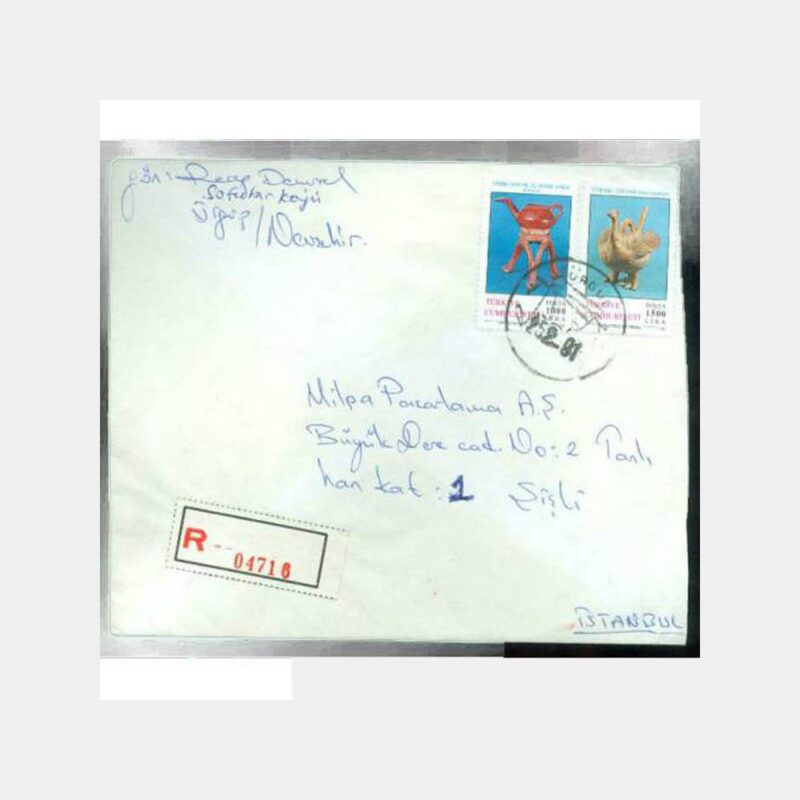 gön: Recep Demirel
Sofular köyü
Ürgüp / Nevşehir.
TÜRKİYE
CUMHURİYETİ
POSTA
1000
LİRA
TÜRKİYE
CUMHURİYETİ
POSTA
1500
LİRA
ÜRGÜ
Milpa Pazarlama A.Ş.
Büyük Dere cad. No: 2 Tanlı
han kat: 1 Şişli
R -- 04716
İSTANBUL